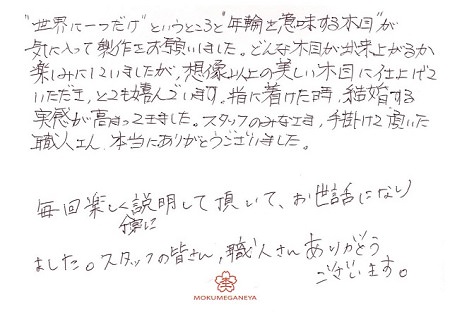 "世界に一つだけ"というところと"年輪を意味する木目"が
気に入って製作をお願いしました。どんな木目が出来上がるか
楽しみにしていましたが、想像以上の美しい木目に仕上げて
いただき、とても嬉んでいます。指に着けた時、結婚する
実感が高まってきました。スタッフのみなさま、手掛けて頂いた
職人さん、本当にありがとうございました。
毎回楽しく説明して頂いて、お世話になり
ました。スタッフの皆さん、職人さんありがとう
ございます。
MOKUMEGANEYA